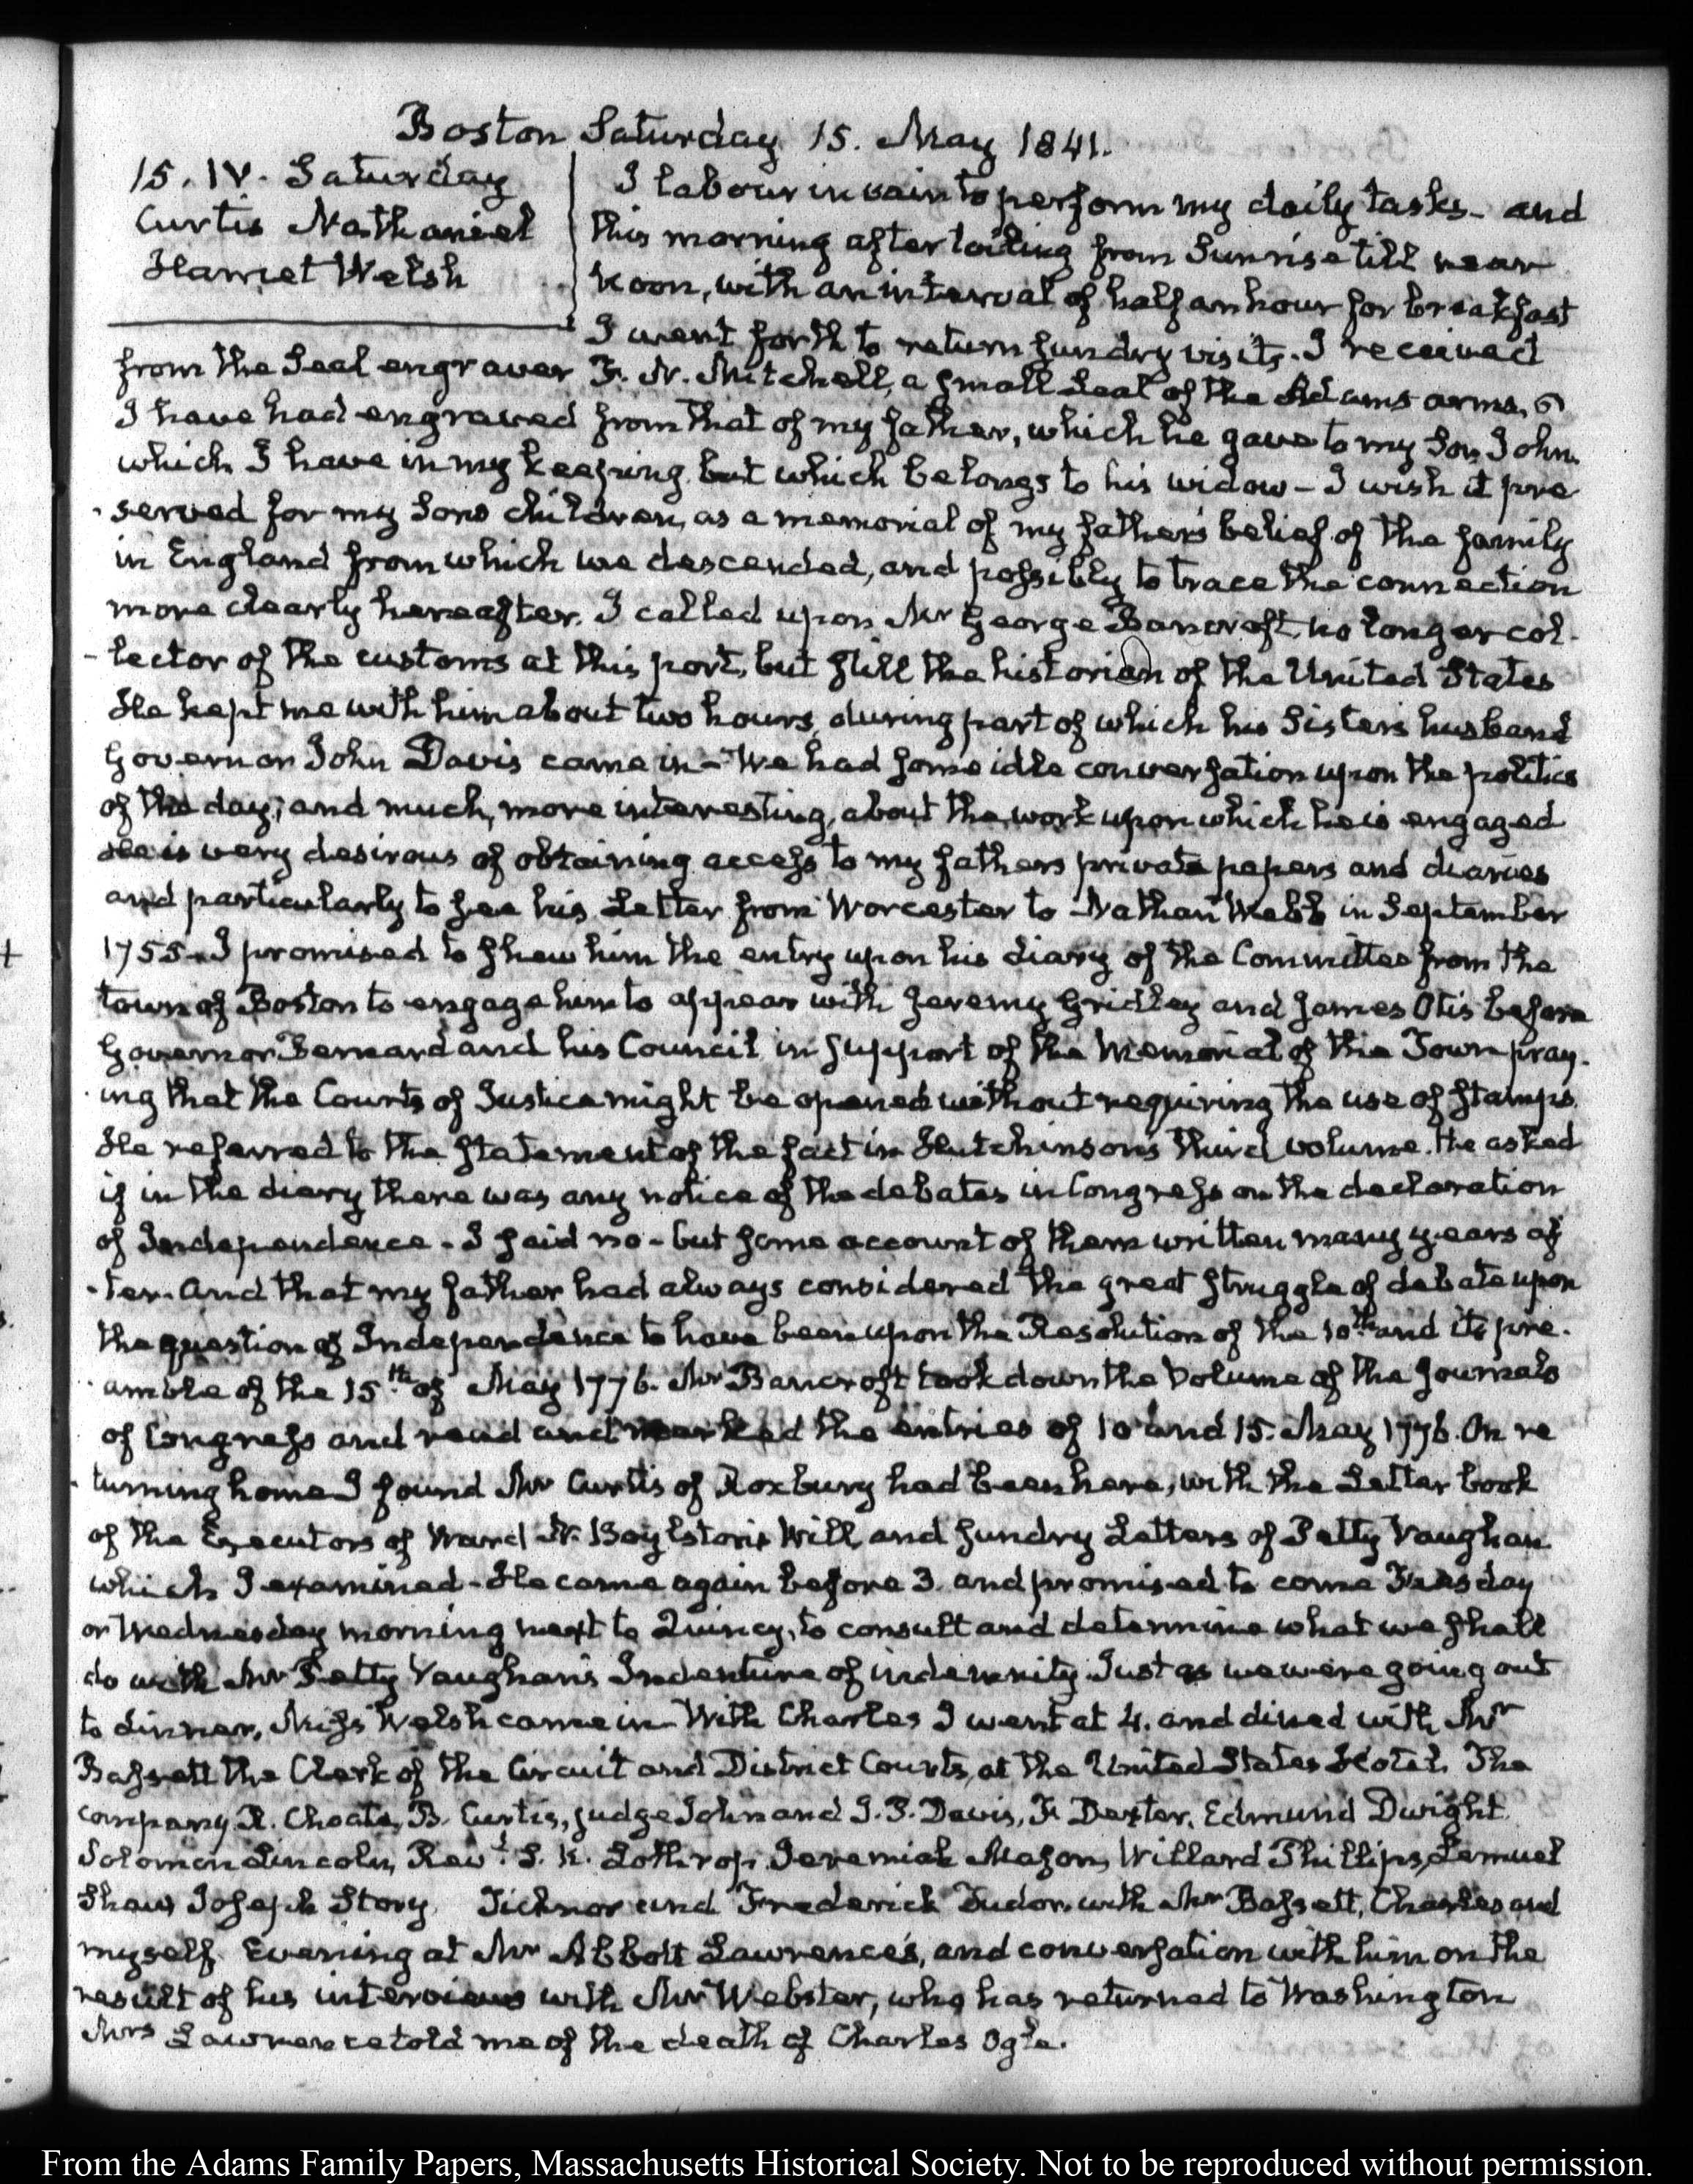 Boston Saturday 15. May 1841.
15. IV. Saturday
Curtis Nathaniel
Harriet Welsh
I labour in vain to perform my daily tasks - and
this morning after toiling from Sunrise till near
Noon, with an interval of half an hour for breakfast
I went forth to return sundry visits. I received
from the Seal engraver F. N. Mitchell, a small Seal of the Adams arms,
I have had engraved from that of my father, which he gave to my Son John.
which I have in my keeping but which belongs to his widow - I wish it pre
-served for my Sons children, as a memorial of my father's belief of the family
in England from which we descended, and possibly to trace the connection
more clearly hereafter. I called upon Mr George Bancroft, no longer col-
-lector of the customs at this port, but still the historian of the United States
He kept me with him about two hours, during part of which his Sister's husband
Governor John Davis came in - We had some idle conversation upon the politics
of the day; and much, more interesting, about the work upon which he is engaged
He is very desirous of obtaining access to my fathers private papers and diaries
and particularly to see his Letter from Worcester to Nathan Webb in September
+ 1755. I promised to shew him the entry upon his diary of the Committee from the
town of Boston to engage him to appear with Jeremy Gridley and James Otis before
Governor Bernard and his Council in support of the Memorial of the Town pray-
-ing that the Courts of Justice might be opened without requiring the use of stamps.
He referred to the statement of the fact in Hutchinson's third volume. He asked
if in the diary there was any notice of the debates in Congress on the declaration
of Independence - I said no - but some account of them written many years af
-ter. And that my father had always considered the great struggle of debate upon
the question of Independence to have been upon the Resolution of the 10th and its pre-
-amble of the 15th of May 1776. Mr Bancroft took down the Volume of the Journals
of Congress and read and marked the entries of 10 and 15. May 1776. On re
-turning home I found Mr Curtis of Roxbury had been here, with the Letter book
of the Executors of Ward N. Boylston's Will, and sundry Letters of Petty Vaughan
which I examined - He came again before 3. and promised to come Tuesday
or Wednesday morning next to Quincy, to consult and determine what we shall
do with Mr Petty Vaughan's Indenture of indemnity. Just as we were going out
to dinner, Miss Welsh came in - With Charles I went at 4. and dined with Mr
Bassett the Clerk of the Circuit and District Courts, at the United States Hotel. The
company R. Choate, B. Curtis, Judge John and I. P. Davis, F. Dexter, Edmund Dwight
Solomon Lincoln, Revd. S. K. Lothrop, Jeremiah Mason, Willard Phillips, Lemuel
Shaw, Joseph Story, Ticknor and Frederick Tudor, with Mr Bassett, Charles and
myself. Evening at Mr Abbott Lawrence's, and conversation with him on the
result of his interviews with Mr Webster, who has returned to Washington
Mrs Lawrence told me of the death of Charles Ogle.
From the Adams Family Papers, Massachusetts Historical Society. Not to be reproduced without permission.